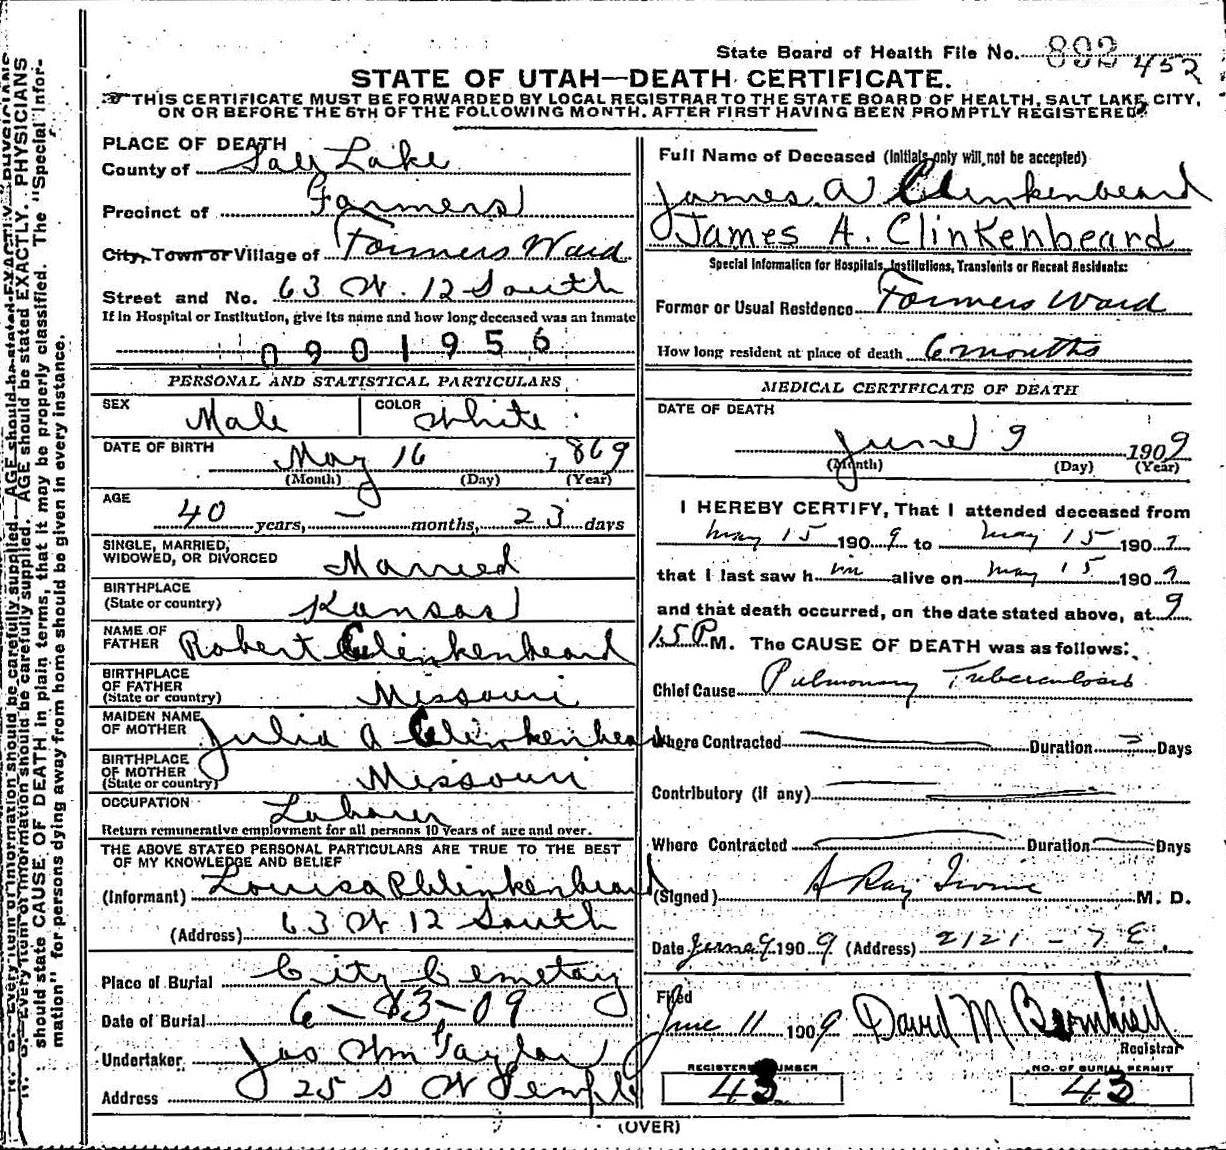 State Board of Health File No. 892 452
STATE OF UTAH—DEATH CERTIFICATE.
THIS CERTIFICATE MUST BE FORWARDED BY LOCAL REGISTRAR TO THE STATE BOARD OF HEALTH, SALT LAKE CITY,
ON OR BEFORE THE 5TH OF THE FOLLOWING MONTH. AFTER FIRST HAVING BEEN PROMPTLY REGISTERED
N. B.—Every item of information should be carefully supplied. AGE should be stated EXACTLY. PHYSICIANS
should state CAUSE OF DEATH in plain terms, that it may be properly classified. The "Special Infor-
mation" for persons dying away from home should be given in every instance.
PLACE OF DEATH
County of Salt Lake
Precinct of Farmers
City, Town or Village of Farmers Ward
Street and No. 63 W. 12 South
If in Hospital or Institution, give its name and how long deceased was an inmate
0901956
PERSONAL AND STATISTICAL PARTICULARS
SEX Male COLOR White
DATE OF BIRTH May 16, 1869
(Month) (Day) (Year)
AGE
40 years, — months, 23 days
SINGLE, MARRIED,
WIDOWED, OR DIVORCED Married
BIRTHPLACE
(State or country) Kansas
NAME OF
FATHER Robert Clinkenbeard
BIRTHPLACE
OF FATHER
(State or country) Missouri
MAIDEN NAME
OF MOTHER Julia A Clinkenbeard
BIRTHPLACE
OF MOTHER
(State or country) Missouri
OCCUPATION Laborer
Return remunerative employment for all persons 10 years of age and over.
THE ABOVE STATED PERSONAL PARTICULARS ARE TRUE TO THE BEST
OF MY KNOWLEDGE AND BELIEF
(Informant) Louisa R Clinkenbeard
(Address) 63 W 12 South
Place of Burial City Cemetary
Date of Burial 6-13-09
Undertaker Jos Wm Taylor
Address 25 S W Temple
Full Name of Deceased (Initials only will not be accepted)
James A Clinkenbeard
James A. Clinkenbeard
Special Information for Hospitals, Institutions, Transients or Recent Residents:
Former or Usual Residence Farmers Ward
How long resident at place of death 6 months
MEDICAL CERTIFICATE OF DEATH
DATE OF DEATH
June 9 1909
(Month) (Day) (Year)
I HEREBY CERTIFY, That I attended deceased from
May 15 1909 to May 15 1909
that I last saw him alive on May 15 1909
and that death occurred, on the date stated above, at 9
15 P M. The CAUSE OF DEATH was as follows:
Chief Cause Pulmonary Tuberculosis
Where Contracted Duration Days
Contributory (if any)
Where Contracted Duration Days
(Signed) A Ray Irvine M. D.
Date June 9 1909 (Address) 2121 - 7 E.
Filed
June 11 1909 David M
Registrar
REGISTERED NUMBER NO. OF BURIAL PERMIT
43 43
(OVER)